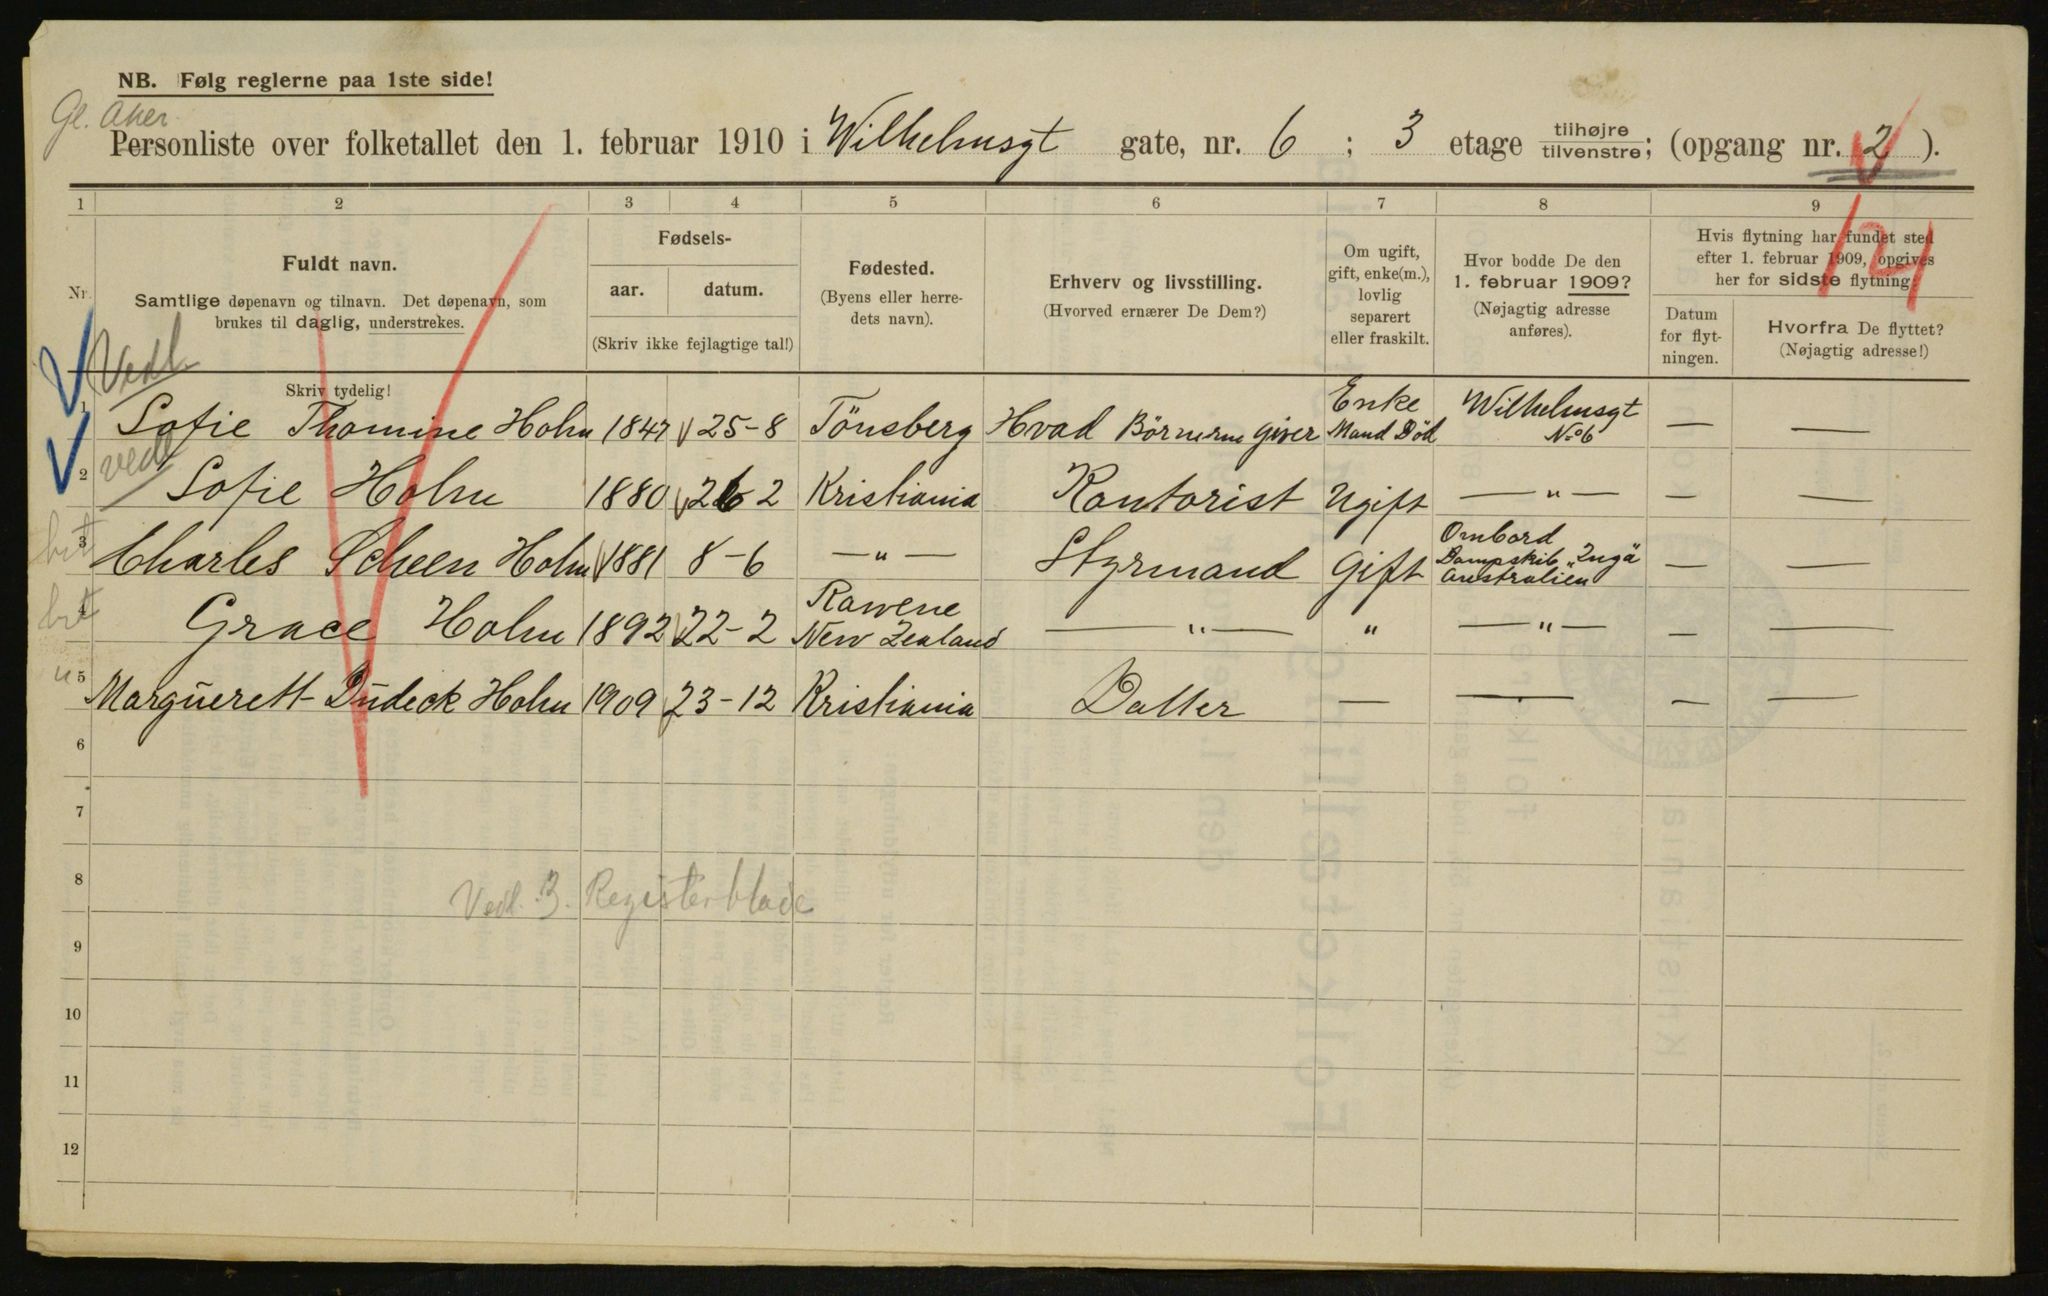 NB. Følg reglerne paa 1ste side!
Gl. Aker.
Personliste over folketallet den 1. februar 1910 i Wilhelmsgt gate, nr. 6 ; 3 etage tilhøjre tilvenstre; (opgang nr. 2 ).
1 2 3 4 5 6 7 8 9
14
Nr.
Fuldt navn.
Samtlige døpenavn og tilnavn. Det døpenavn, som
brukes til daglig, understrekes.
Skriv tydelig!
Fødsels-
aar. datum.
(Skriv ikke fejlagtige tal!)
Fødested.
(Byens eller herre-
dets navn).
Erhverv og livsstilling.
(Hvorved ernærer De Dem?)
Om ugift,
gift, enke(m.),
lovlig
separert
eller fraskilt.
Hvor bodde De den
1. februar 1909?
(Nøjagtig adresse
anføres).
Hvis flytning har fundet sted
efter 1. februar 1909, opgives
her for sidste flytning:
Datum
for flyt-
ningen.
Hvorfra De flyttet?
(Nøjagtig adresse!)
Vedl.
1 Sofie Thomine Holm 1847 25-8 Tönsberg Hvad Börnerne giver Enke Mand Död Wilhelmsgt No 6 — —
vedl
2 Sofie Holm 1880 26 2 Kristiania Kontorist Ugift —"— — —
brt
3 Charles Scheen Holm 1881 8-6 —"— Styrmand Gift Ombord Dampskib "Inga" Australien — —
brt
4 Grace Holm 1892 22-2 Rawene New Zealand —"— " —"— — —
"
5 Marguerett Dudeck Holm 1909 23-12 Kristiania Datter — — — —
6
7
8
Vedl. 3. Registerblade
9
10
11
12